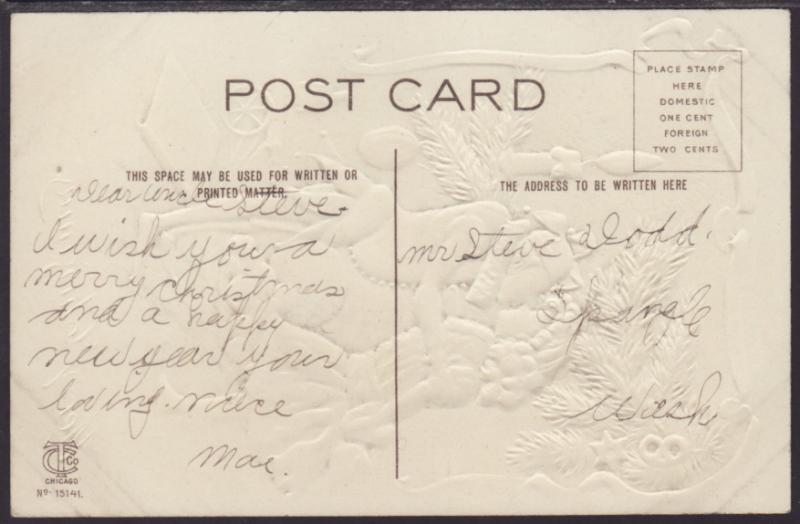 POST CARD
PLACE STAMP
HERE
DOMESTIC
ONE CENT
FOREIGN
TWO CENTS
THIS SPACE MAY BE USED FOR WRITTEN OR
PRINTED MATTER.
Dear uncle Steve.
I wish you a
merry christmas
and a happy
new year your
loving niece
Mae.
THE ADDRESS TO BE WRITTEN HERE
mr Steve Dodd.
Spangle
Wash
CHICAGO
No. 15141.